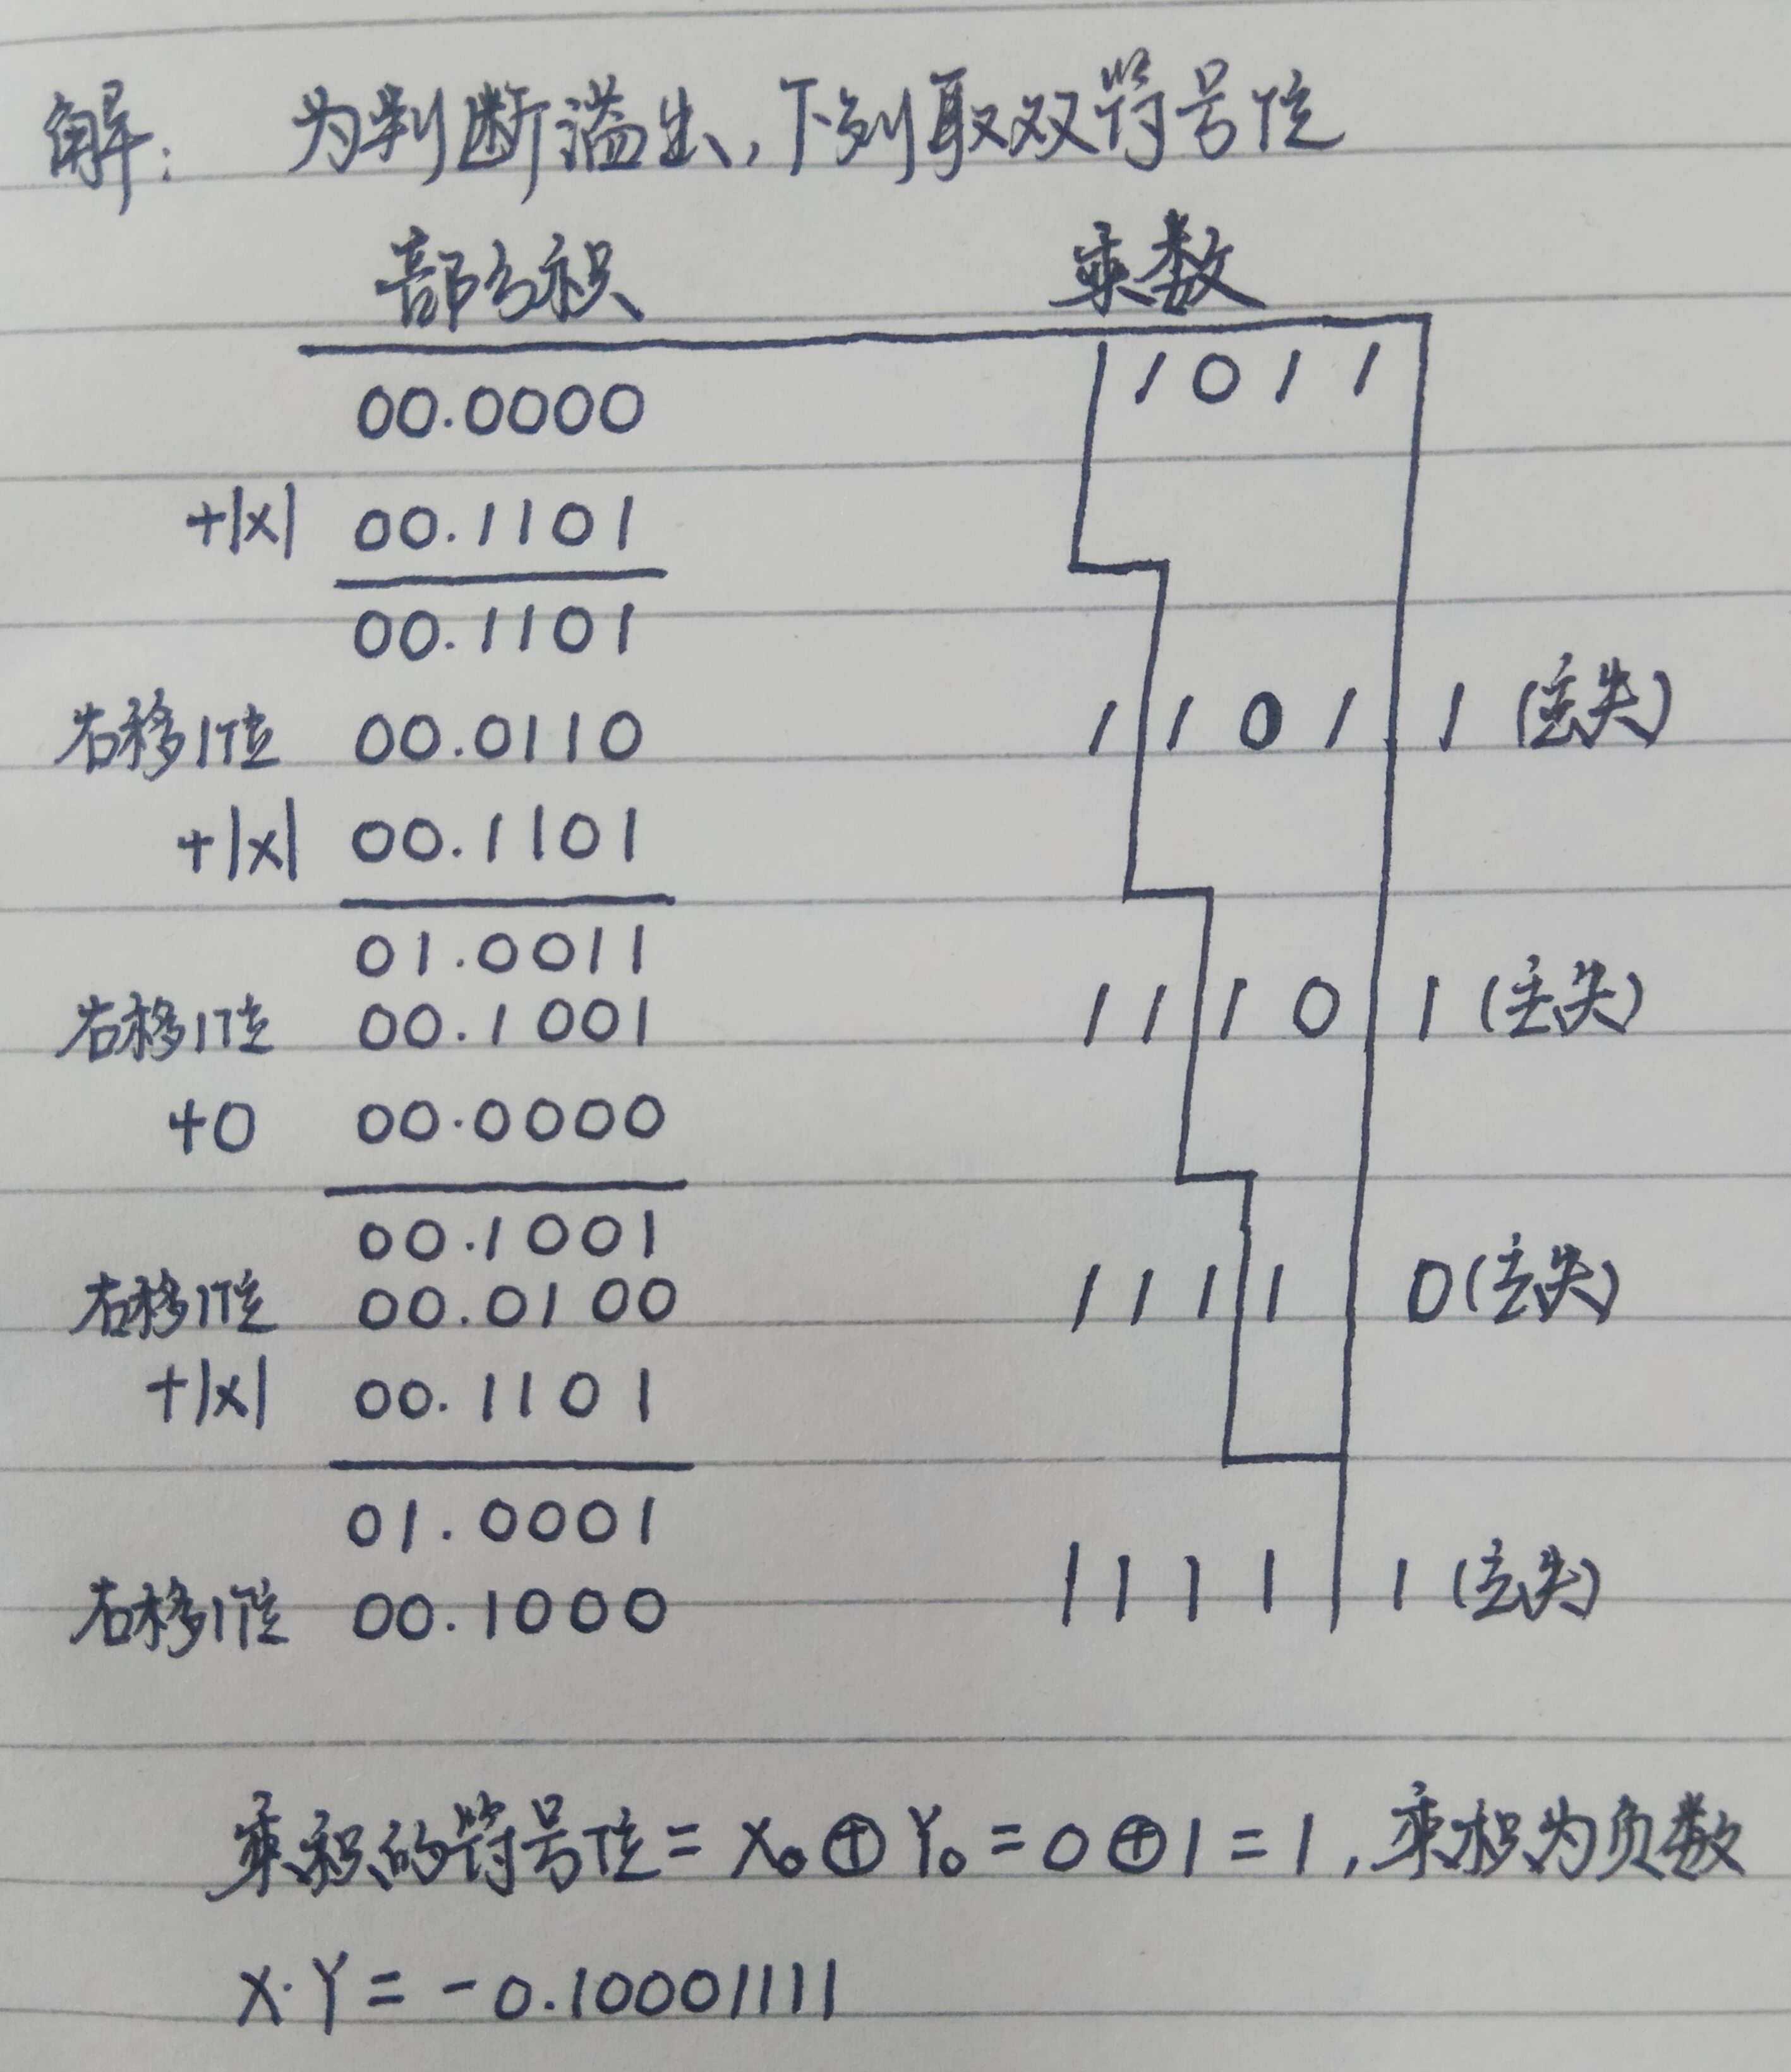 解: 为判断溢出,下列取双符号位
部分积 乘数
00.0000 1011
+|x| 00.1101
00.1101
右移1位 00.0110 1 101 1 (丢失)
+|x| 00.1101
01.0011
右移1位 00.1001 11 10 1 (丢失)
+0 00.0000
00.1001
右移1位 00.0100 111 1 0 (丢失)
+|x| 00.1101
01.0001
右移1位 00.1000 1111 1 (丢失)
乘积的符号位 = X₀ ⊕ Y₀ = 0 ⊕ 1 = 1 ,乘积为负数
X·Y = -0.10001111